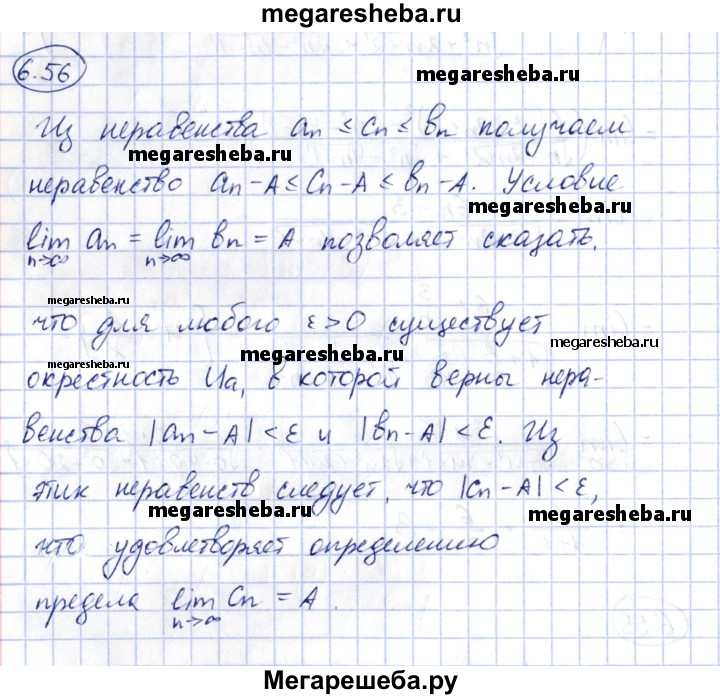 megaresheba.ru
6.56
megaresheba.ru
Из неравенства an ≤ cn ≤ bn получаем
megaresheba.ru
неравенство an-A ≤ cn-A ≤ bn-A. Условие
megaresheba.ru
lim an = lim bn = A позволяет сказать,
n→∞ n→∞
megaresheba.ru
что для любого ε>0 существует
megaresheba.ru
megaresheba.ru
окрестность Ua, в которой верны нера-
венства |an-A|<ε и |bn-A|<ε. Из
megaresheba.ru
этих неравенств следует, что |cn-A|<ε,
megaresheba.ru
megaresheba.ru
что удовлетворяет определению
предела lim cn = A.
n→∞
Мегарешеба.ру